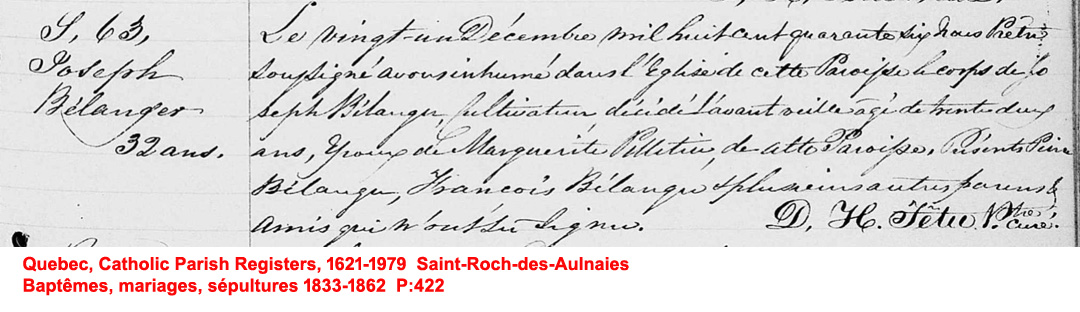 S, 63,
Joseph
Bélanger
32 ans.
Le vingt-un Décembre mil huit cent quarante six, Nous Prêtre
Soussigné avons inhumé dans l'Eglise de cette Paroisse le corps de Jo
seph Bélanger, Cultivateur décédé l'avant veille agé de trente deux
ans, Epoux de Marguerite Pelletier, de cette Paroisse. Présents Pierre
Bélanger, François Bélanger & plusieurs autres parens &
amis qui n'ont su signer.
D. H. Têtu Ptre Curé.
Quebec, Catholic Parish Registers, 1621-1979 Saint-Roch-des-Aulnaies
Baptêmes, mariages, sépultures 1833-1862 P:422